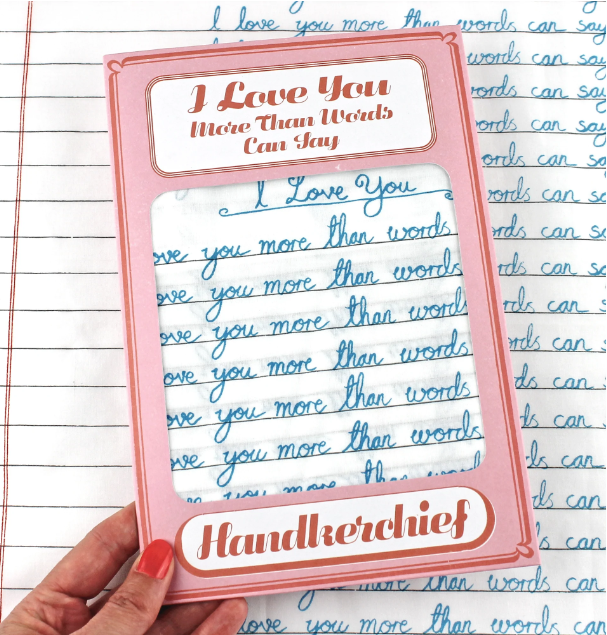 I love you more than words can say
words can say
words can say
ords can say
ords can say
words can
ords can
rds can
rds can
rds can
ds can
ds can
ds can
s can
s can
I Love You
More Than Words
Can Say
I Love You
ove you more than words
ove you more than words
ove you more than words
ove you more than words
ove you more than words
ove you more than words
you more than word
Handkerchief
more than words can
love you more than words can